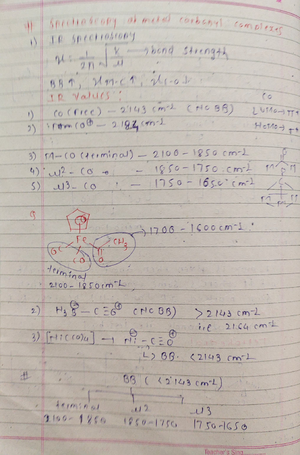 # Spectroscopy of metal carbonyl complexes
1) IR Spectroscopy
ν = 1/2π √K/μ → bond strength
BB↑, νM-C↑, νC-O↓
IR Values:
CO
1) CO (free) - 2143 cm-1 (No BB)
2)
3) M-CO (terminal) - 2100-1850 cm-1
4) μ2-CO - 1850-1750 cm-1
5) μ3-CO - 1750-1650 cm-1
Q
OC Fe CH3
CO O
→ 1700-1600 cm-1
terminal
2100-1850 cm-1
2) H3B - C≡O (No BB) > 2143 cm-1
i.e 2164 cm-1
3) [Ni(CO)4] → Ni - C≡O
↳ BB < 2143 cm-1
#
BB (<2143 cm-1)
terminal μ2 μ3
2100-1850 1850-1750 1750-1650